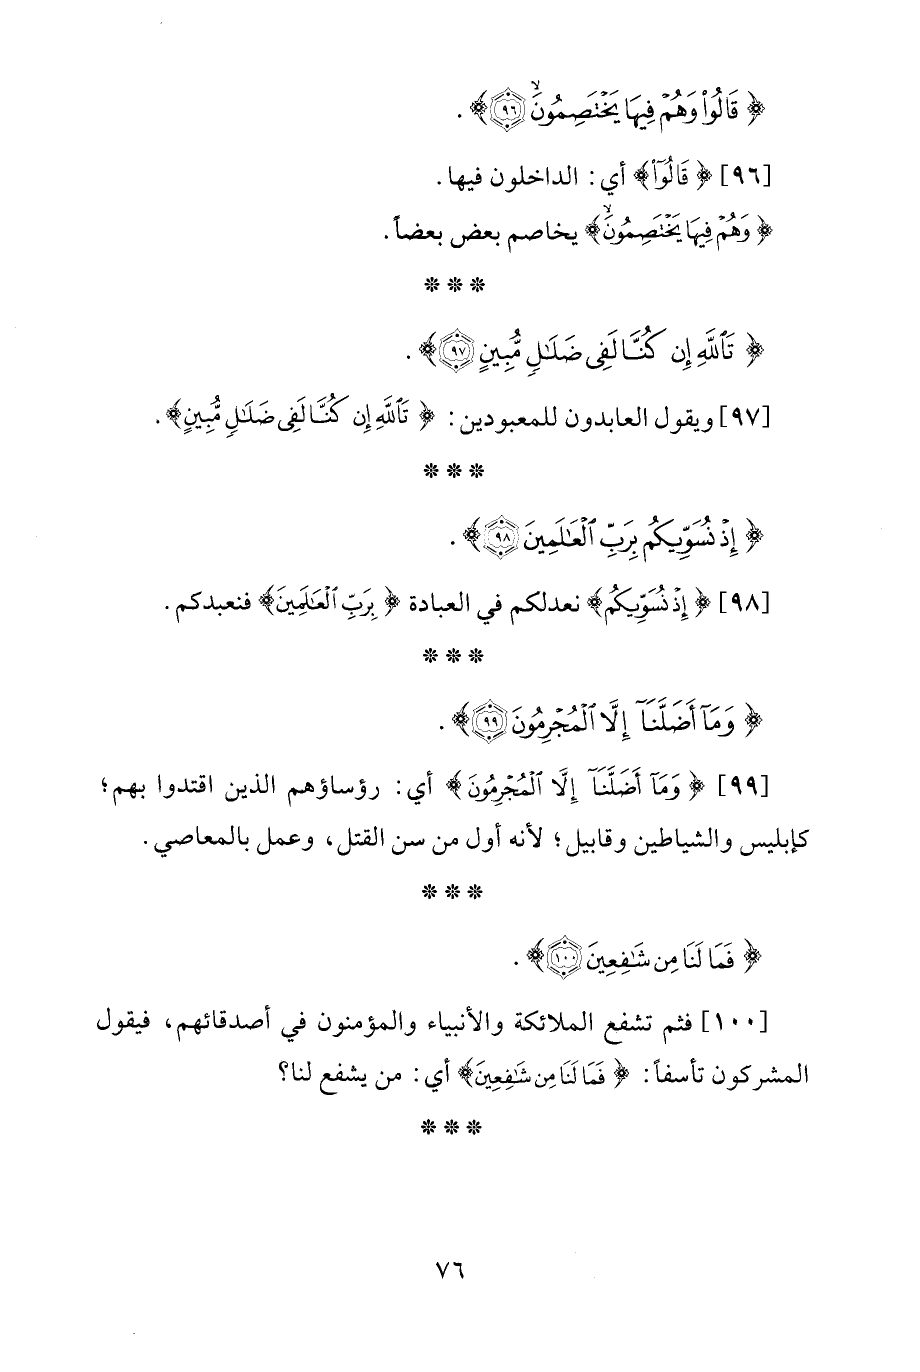 ﴿ قَالُوا۟ وَهُمْ فِيهَا يَخْتَصِمُونَۙ ﴿٩٦﴾ .
[٩٦] ﴿ قَالُوٓا۟ ﴾ أي: الداخلون فيها.
﴿ وَهُمْ فِيهَا يَخْتَصِمُونَۙ ﴾ يخاصم بعض بعضاً.
* * *
﴿ تَٱللَّهِ إِن كُنَّا لَفِى ضَلَٰلٍ مُّبِينٍ ﴿٩٧﴾ .
[٩٧] ويقول العابدون للمعبودين: ﴿ تَٱللَّهِ إِن كُنَّا لَفِى ضَلَٰلٍ مُّبِينٍ ﴾.
* * *
﴿ إِذْ نُسَوِّيكُم بِرَبِّ ٱلْعَٰلَمِينَ ﴿٩٨﴾ .
[٩٨] ﴿ إِذْ نُسَوِّيكُم ﴾ نعدلكم في العبادة ﴿ بِرَبِّ ٱلْعَٰلَمِينَ ﴾ فنعبدكم.
* * *
﴿ وَمَآ أَضَلَّنَآ إِلَّا ٱلْمُجْرِمُونَ ﴿٩٩﴾ .
[٩٩] ﴿ وَمَآ أَضَلَّنَآ إِلَّا ٱلْمُجْرِمُونَ ﴾ أي: رؤساؤهم الذين اقتدوا بهم؛
كإبليس والشياطين وقابيل؛ لأنه أول من سن القتل، وعمل بالمعاصي.
* * *
﴿ فَمَا لَنَا مِن شَٰفِعِينَ ﴿١٠٠﴾ .
[١٠٠] فثم تشفع الملائكة والأنبياء والمؤمنون في أصدقائهم، فيقول
المشركون تأسفاً: ﴿ فَمَا لَنَا مِن شَٰفِعِينَ ﴾ أي: من يشفع لنا؟
* * *
٧٦